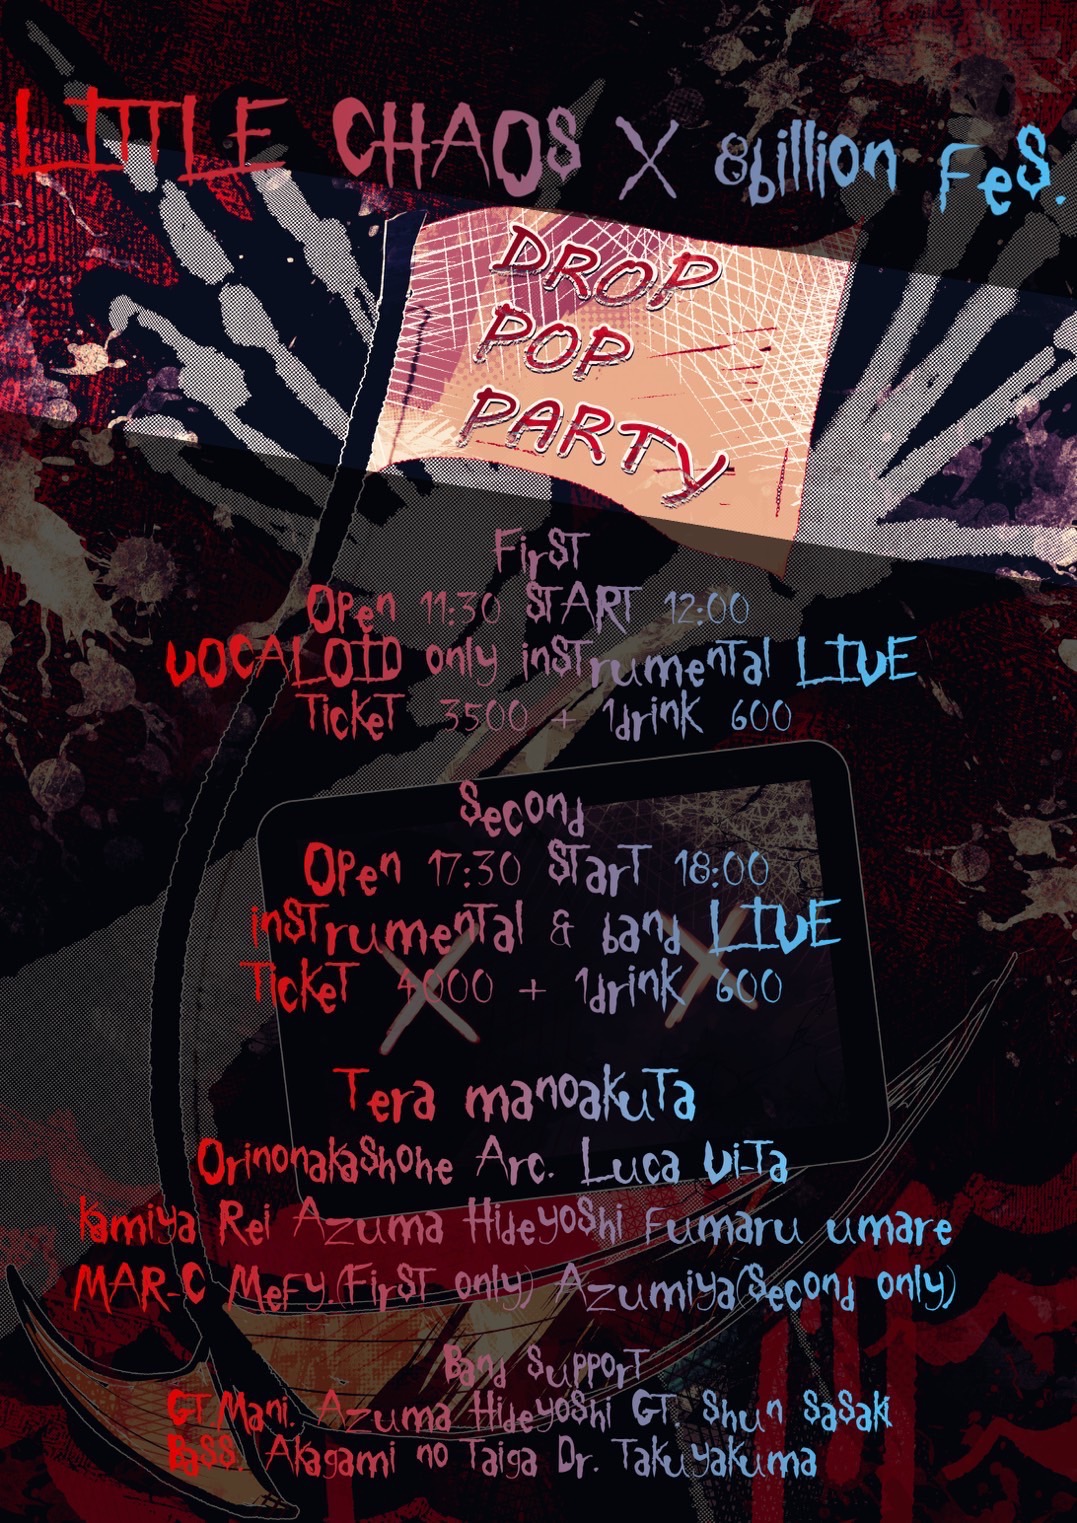 LITTLE CHAOS X 8billion Fes.
DROP
POP
PARTY
First
Open 11:30 START 12:00
VOCALOID only instrumental LIVE
Ticket 3500 + 1drink 600
Second
Open 17:30 Start 18:00
instrumental & band LIVE
Ticket 4000 + 1drink 600
Tera manoakuta
Orinonakashohe Arc. Luca Vi-Ta
kamiya Rei Azuma Hideyoshi Fumaru umare
MAR-C Mefy.(First only) Azumiya(Second only)
Band Support
GT Mani. Azuma Hideyoshi GT. Shun Sasaki
Bass. Akagami no Taiga Dr. Takuyakuma